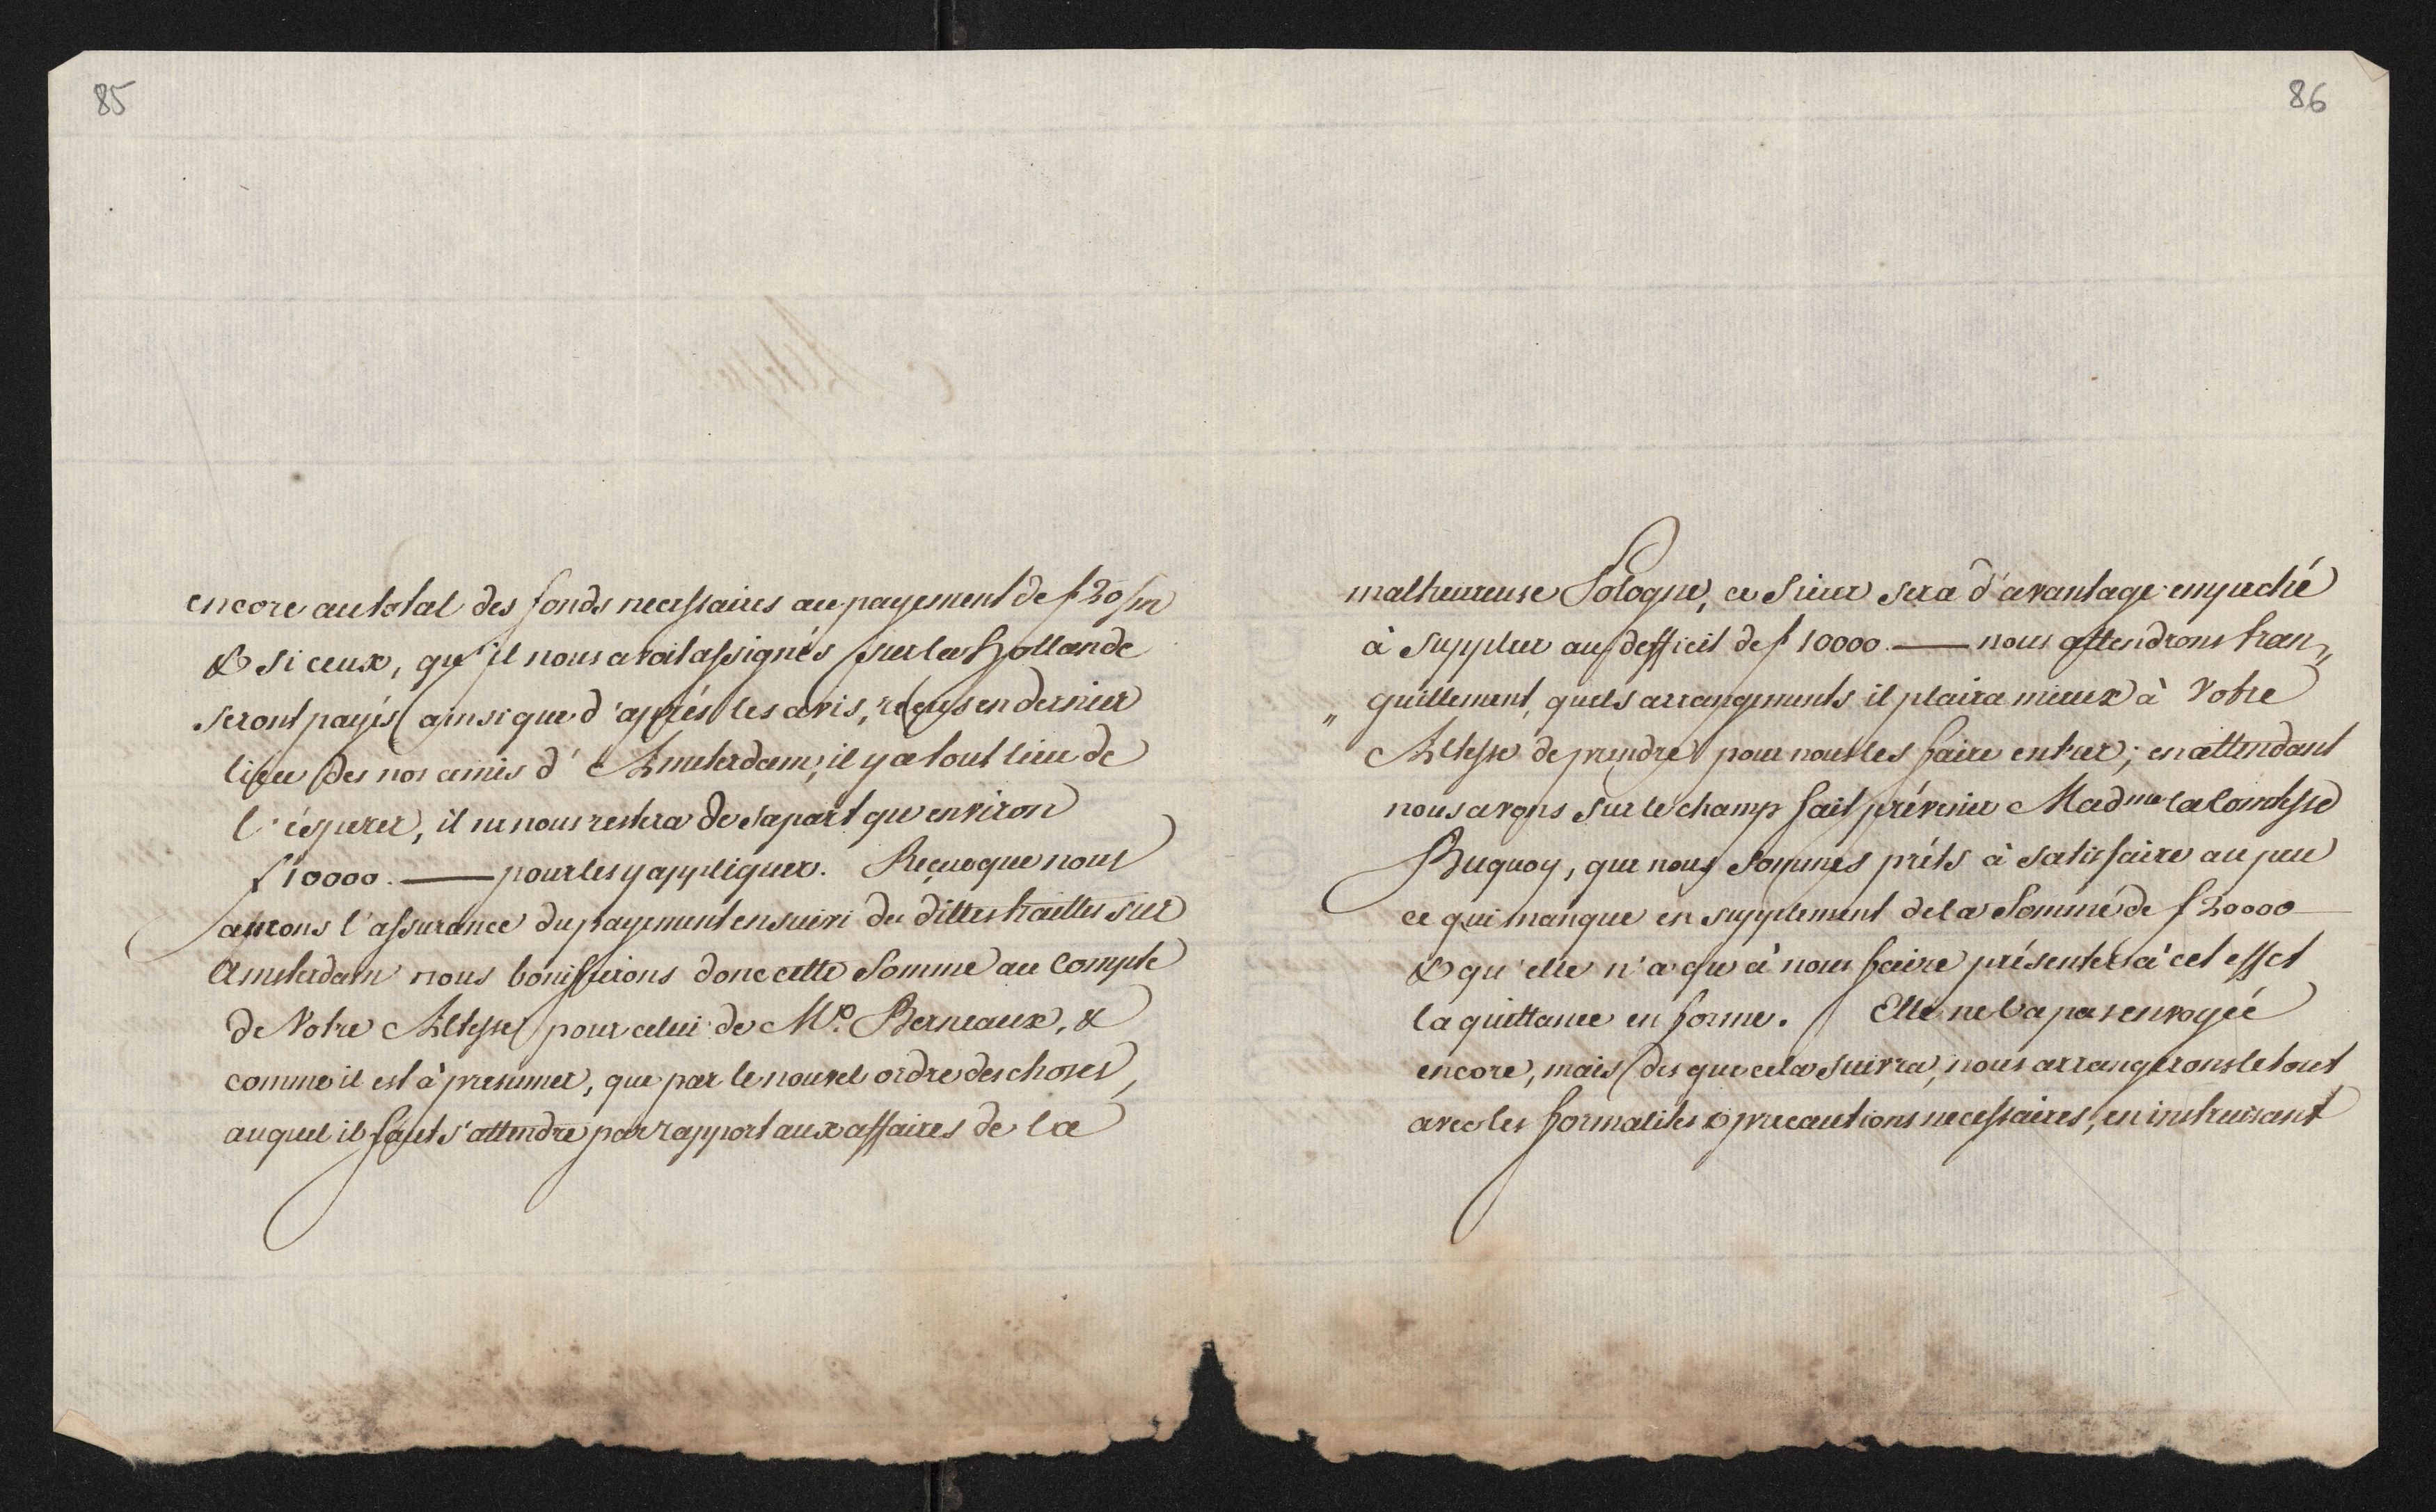 85
encore au total des fonds necessaires au payement de f 20/m
& si ceux, qu'il nous avoit assignés sur la Hollande
seront payés (ainsi que d'après les avis, reçus en dernier
lieu des nos amis d'Amsterdam, il y a tout lieu de
l'ésperer, il ne nous restera de sa part qu'environ
f 10000.— pour les y appliquer. que nous
aurons l'assurance du payement ensuivi du dittes traittes sur
Amsterdam nous bonifierons donc cette Somme au Compte
de Votre Altesse pour celui de Mr. Berneaux, &
comme il est à présumer, que par le nouvel ordre des choses,
auquel il faut s'attendre par rapport aux affaires de la
86
malheureuse Pologne, ce Sieur sera d'avantage empeché
à suppléer au defficit de f 10000.— nous attendrons tran„
„quillement, quels arrangements il plaira mieux à Votre
Altesse de prendre pour nous les faire entrer; en attendant
nous avons sur le champ fait prévenir Madme la Comtesse
Buquoy, que nous sommes prêts à satisfaire au peu
ce qui manque en supplement de la Somme de f 20000
& qu'elle n'a qu'à nous faire présenter à cet effet
la quittance en forme. Elle ne l'a pas envoyée
encore, mais des que cela suivra, nous arrangerons le tout
avec les formalités & precautions necessaires, en instruisant